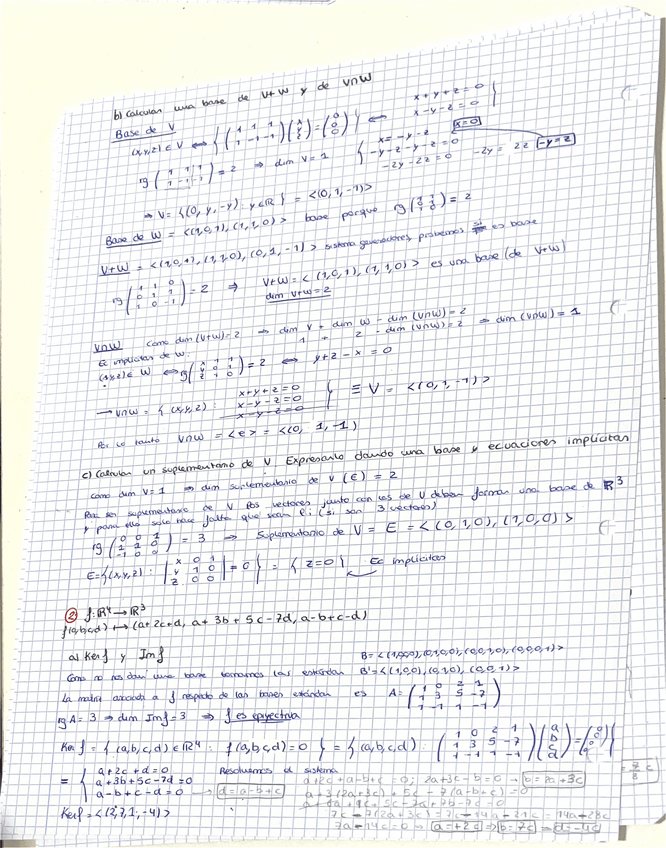 b) Calcular una base de V+W y de V∩W
Base de V
(x,y,z) ∈ V ⟺ { (1 1 1 / 1 -1 -1) (x y z) = (0 0 0) } ⟺ x+y+z=0 / x-y-z=0 }
rg (1 1 1 / 1 -1 -1) = 2 ⇒ dim V = 1 { x = -y-z / -y-z-y-z=0 / -2y-2z=0 x=0 -2y = 2z -y=z
⇒ V = {(0, y, -y): y∈R } = <(0, 1, -1)>
Base de W = <(1,0,1), (1,1,0)> base porque rg (1 1 / 0 1 / 1 0) = 2
V+W = <(1,0,1), (1,1,0), (0,1,-1)> sistema generadores, probemos si es base
rg (1 1 0 / 0 1 1 / 1 0 -1) = 2 ⇒ V+W = <(1,0,1), (1,1,0)> es una base (de V+W)
dim V+W = 2
V∩W Como dim(V+W)=2 ⇒ dim V + dim W - dim(V∩W) = 2
1 + 2 - dim(V∩W) = 2 ⇒ dim(V∩W) = 1
Ec implícitas de W:
(x,y,z) ∈ W ⟺ rg (x 1 1 / y 0 1 / z 1 0) = 2 ⟺ y+z-x = 0
→ V∩W = { (x,y,z) : x+y+z=0 / x-y-z=0 / x-y-z=0 } ≡ V = <(0,1,-1)>
Por lo tanto V∩W = <e> = <(0, 1, -1)
c) Calcular un suplementario de V Expresarlo dando una base y ecuaciones implícitas
Como dim V=1 ⇒ dim suplementario de V (E) = 2
Para ser suplementario de V los vectores junto con los de V deben formar una base de R³
y para ello solo hace falta que sean l.i (si son 3 vectores)
rg (0 0 1 / 1 1 0 / -1 0 0) = 3 ⇒ Suplementario de V = E = <(0,1,0), (1,0,0)>
E={(x,y,z) : |x 0 1 / y 1 0 / z 0 0| = 0 } = { z=0 } Ec implícitas
② f: R⁴ → R³
f(a,b,c,d) ↦ (a+2c+d, a+3b+5c-7d, a-b+c-d)
a) Ker f y Im f
B = <(1,0,0,0), (0,1,0,0), (0,0,1,0), (0,0,0,1)>
Como no nos dan una base tomamos las estándar B' = <(1,0,0), (0,1,0), (0,0,1)>
La matriz asociada a f respecto de las bases estándar es A = (1 0 2 1 / 1 3 5 -7 / 1 -1 1 -1)
rg A = 3 ⇒ dim Imf = 3 ⇒ f es epiyectiva
Ker f = { (a,b,c,d) ∈ R⁴ : f(a,b,c,d) = 0 } = { (a,b,c,d) : (1 0 2 1 / 1 3 5 -7 / 1 -1 1 -1) (a b c d) = (0 0 0) }
= { a+2c+d=0 / a+3b+5c-7d=0 / a-b+c-d=0 → d=a-b+c
Resolvemos el sistema
a+2c+a-b+c = 0; 2a+3c-b=0 → b=2a+3c
a+3(2a+3c)+5c-7(a-b+c)=0
a+6a+9c+5c-7a+7b-7c=0
7c+7(2a+3c) = 7c+14a+21c = 14a+28c
7a+14c=0 → a=+2c ⇒ b=7c ⇒ d=-4c
Kerf = <(2,7,1,-4)>